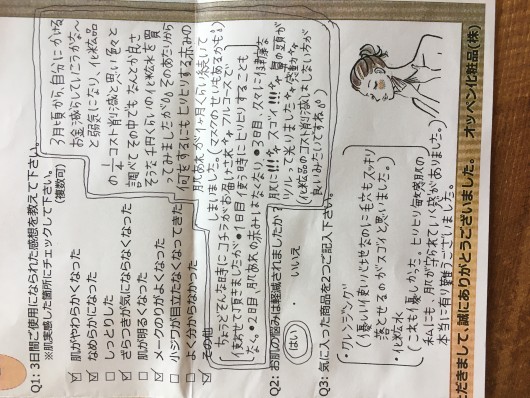 Q1: 3日間ご使用になられた感想を教えて下さい。
※肌実感した箇所にチェックして下さい。(複数可)
☑ 肌がやわらかくなった
☑ なめらかになった
□ しっとりした
☑ ざらつきが気にならなくなった
□ 肌が明るくなった
☑ メークのりがよくなった
□ 小ジワが目立たなくなってきた
□ よく分からなかった
☑ その他
3月頃から、自分にかける
お金減らしていこうかなぁ
と弱気になり、化粧品
の コスト削減と思い色々
調べてその中でもなんか良さ
そうな 円くらいの化粧水を買
ってみましたが
何をするにもヒリヒリする赤みの
肌あれが1ヶ月くらい続いて
しまいました。(マスクのせいもあるかも)
ちょうどそんな時にコチラがお届けされ アルコールで
使わせて頂きましたが・1日目 使う時ヒリヒリすることも
なく。・2日目、肌あれの赤みはなくなり、・3日目 久々に健康な
肌に!!! スゴイ!!! 鼻の頭が
ツルって光りました 感動
(化粧品のコスト削減はしまい方が
良いみたいですね)
Q2: お肌の悩みは軽減されましたか?
はい ・ いいえ
Q3: 気に入った商品を2つご記入下さい。
・クレンジング
(優しい使い心地なのに毛穴もスッキリ
落とせるのがスゴイと思いました。)
・化粧水
(これも優しかった。ヒリヒリ敏感肌の
私にも、肌が守られていく感がありました。)
本当に有り難うございました。
ただきまして、誠にありがとうございました。 オッペン化粧品(株)